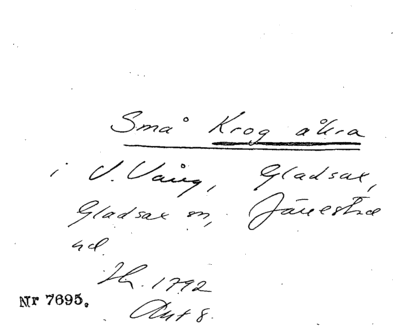 Små Krog åkra
i V. Vång, Gladsax,
Gladsax sn, Järrestad
hd.
Lh. 1792
Akt 8.
Nr 7695.